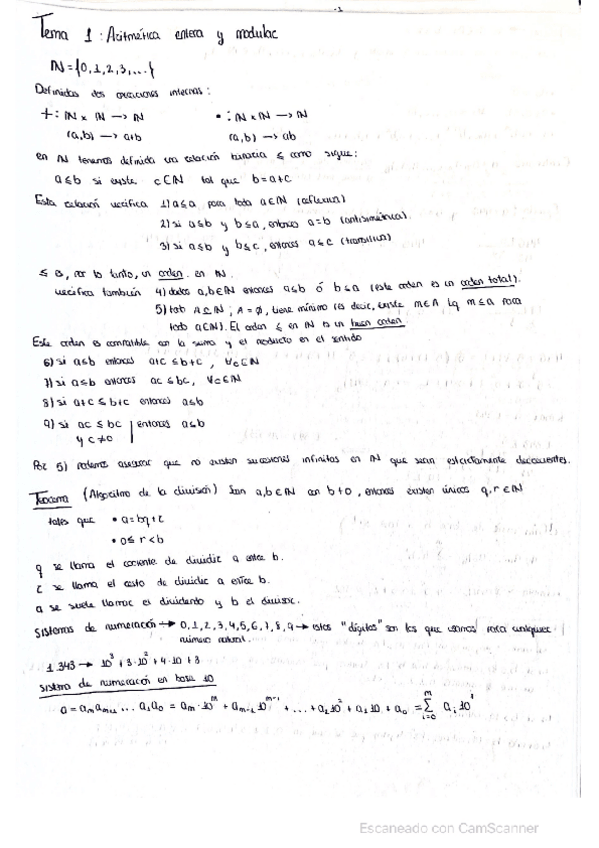 -1
Tema 1: Aritmética entera y modular
ℕ={0,1,2,3,...}
Definidas dos operaciones internas:
+: ℕ x ℕ → ℕ    •: ℕ x ℕ → ℕ
(a,b) → a+b    (a,b) → ab
en ℕ tenemos definida una relación binaria ≤ como sigue:
a≤b si existe c∈ℕ tal que b=a+c
Esta relación verifica 1) a≤a para todo a∈ℕ (reflexiva)
2) si a≤b y b≤a, entonces a=b (antisimétrica).
3) si a≤b y b≤c, entonces a≤c (transitiva)
≤ es, por lo tanto, un orden en ℕ.
verifica también 4) dados a,b∈ℕ entonces a≤b ó b≤a (este orden es un orden total).
5) todo A⊆ℕ; A=∅, tiene mínimo (es decir, existe m∈A tq m≤a para
todo a∈ℕ). El orden ≤ en ℕ es un buen orden.
Este orden es compatible con la suma y el producto en el sentido
6) si a≤b entonces a+c≤b+c, ∀c∈ℕ
7) si a≤b entonces ac≤bc, ∀c∈ℕ
8) si a+c≤b+c entonces a≤b
9) si ac≤bc | entonces a≤b
y c≠0
Por 5) podemos asegurar que no existen sucesiones infinitas en ℕ que sean estrictamente decrecientes.
Teorema (Algoritmo de la división) Sean a,b∈ℕ con b≠0, entonces existen únicos q,r∈ℕ
tales que • a=bq+r
• 0≤r<b
q se llama el cociente de dividir a entre b.
r se llama el resto de dividir a entre b.
a se suele llamar el dividendo y b el divisor.
Sistemas de numeración → 0,1,2,3,4,5,6,7,8,9 → estos "dígitos" son los que usamos para cualquier
número natural.
1.343 → 10³+3·10²+4·10+3
sistema de numeración en base 10
a = aₘaₘ₋₁...a₁a₀ = aₘ·10ᵐ + aₘ₋₁10ᵐ⁻¹ + ... + a₂10² + a₁10 + a₀ = ∑ᵐᵢ₌₀ aᵢ10ⁱ
Escaneado con CamScanner